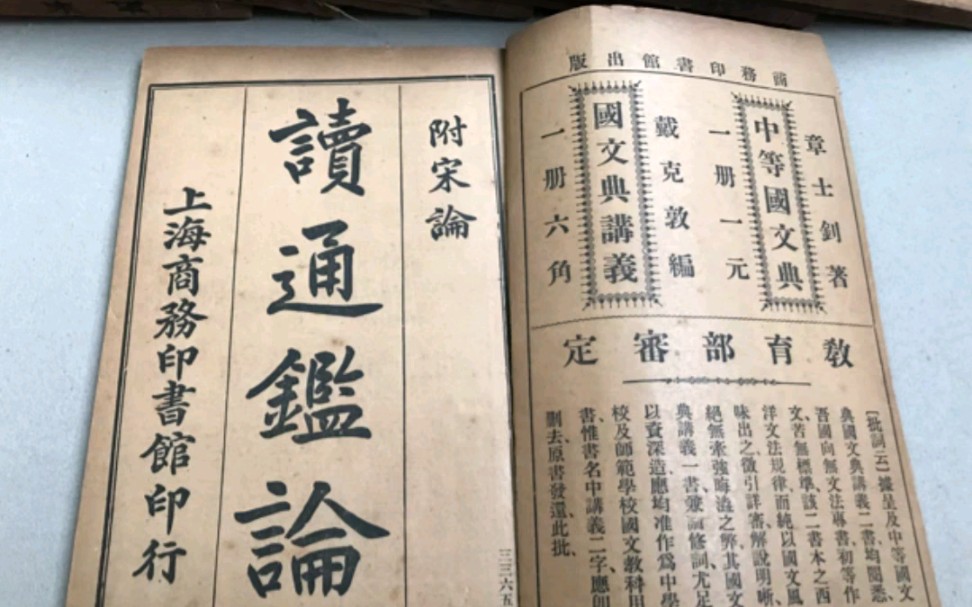 商務印書館出版
章士釗著
中等國文典
一册一元
戴克敦編
國文典講義
一册六角
教育部審定
〔批詞云〕據呈及中等國文
典國文典講義二書均閱悉、
吾國向無文法專書初等作
文苦無標準、該二書本之西
洋文法規律、而純以國文風
味出之、徵引詳審解說明晰、
絕無牽強晦澁之弊其國文
典講義一書兼論修詞尤足
以資深造應均准作爲中學
校及師範學校國文教科用
書惟書名中講義二字應卽
刪去原書發還、此批、
附宋論
讀通鑑論
上海商務印書館印行
三三六五